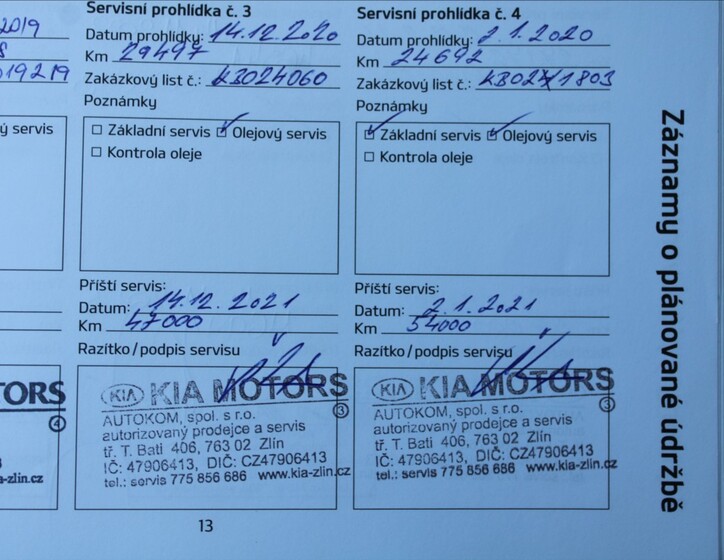 2019
8
019219
ý servis
TORS
4
a-zlin.cz
Servisní prohlídka č. 3
Datum prohlídky: 14.12.2020
Km 29497
Zakázkový list č.: KB024060
Poznámky
Základní servis Olejový servis
Kontrola oleje
Příští servis:
Datum: 14.12.2021
Km 47000
Razítko/podpis servisu
KIA KIA MOTORS
3
AUTOKOM, spol. s r.o.
autorizovaný prodejce a servis
tř. T. Bati 406, 763 02 Zlín
IČ: 47906413, DIČ: CZ47906413
tel.: servis 775 856 686 www.kia-zlin.cz
Servisní prohlídka č. 4
Datum prohlídky: 2.1.2020
Km 24692
Zakázkový list č.:
Poznámky
Základní servis Olejový servis
Kontrola oleje
Příští servis:
Datum: 2.1.2021
Km 54000
Razítko/podpis servisu
KIA KIA MOTORS
3
AUTOKOM, spol. s r.o.
autorizovaný prodejce a servis
tř. T. Bati 406, 763 02 Zlín
IČ: 47906413, DIČ: CZ47906413
tel.: servis 775 856 686 www.kia-zlin.cz
13
Záznamy o plánované údržbě